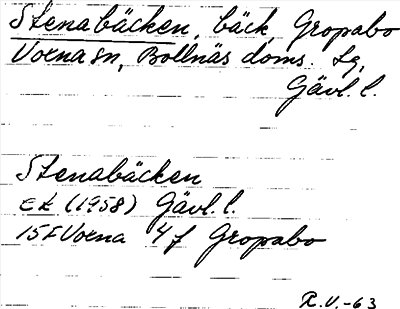 Stenabäcken, bäck, Gropabo
Voxna sn, Bollnäs doms. Lg,
Gävl. l.
Stenabäcken
Ek (1958) Gävl. l.
15F Voxna 4 f Gropabo
R.V.-63